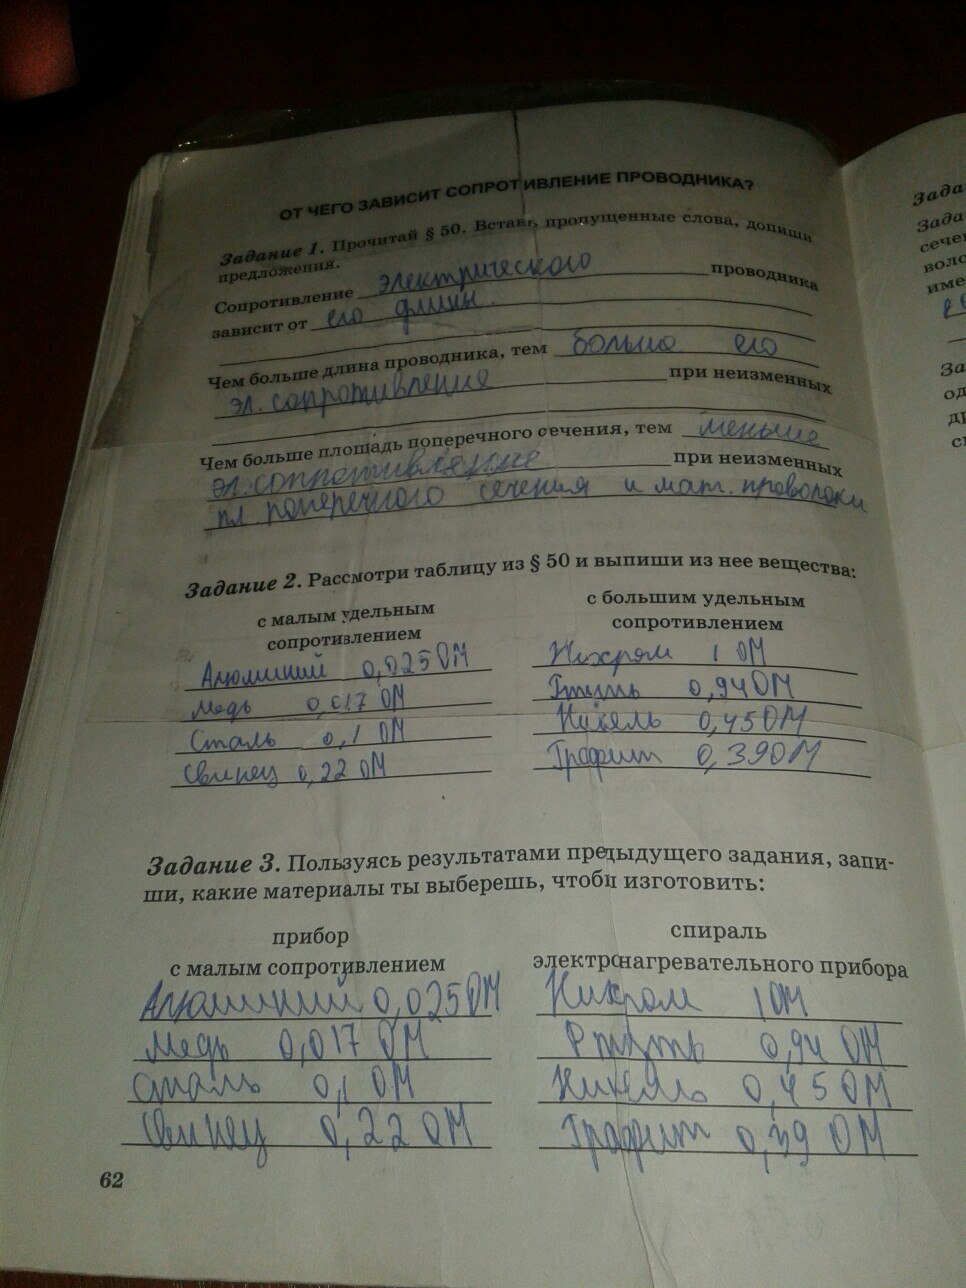 ОТ ЧЕГО ЗАВИСИТ СОПРОТИВЛЕНИЕ ПРОВОДНИКА?
Задание 1. Прочитай § 50. Вставь пропущенные слова, допиши
предложения.
Сопротивление электрического проводника
зависит от его длины.
Чем больше длина проводника, тем больше его
эл. сопротивления при неизменных
Чем больше площадь поперечного сечения, тем меньше
эл. сопротивление при неизменных
пл. поперечного сечения и мат. проволоки
Задание 2. Рассмотри таблицу из § 50 и выпиши из нее вещества:
с малым удельным сопротивлением
с большим удельным сопротивлением
Алюминий 0,025 ОМ
Медь 0,017 ОМ
Сталь 0,1 ОМ
Свинец 0,22 ОМ
Нихром 1 ОМ
0,94 ОМ
0,45 ОМ
Графит 0,39 ОМ
Задание 3. Пользуясь результатами предыдущего задания, запи-
ши, какие материалы ты выберешь, чтобы изготовить:
прибор
с малым сопротивлением
спираль
электронагревательного прибора
Алюминий 0,025 ОМ
Медь 0,017 ОМ
Сталь 0,1 ОМ
Свинец 0,22 ОМ
Нихром 1 ОМ
Ртуть 0,94 ОМ
Никель 0,45 ОМ
Графит 0,39 ОМ
62
Зада
Зада
сечен
воло
име
За
од
др